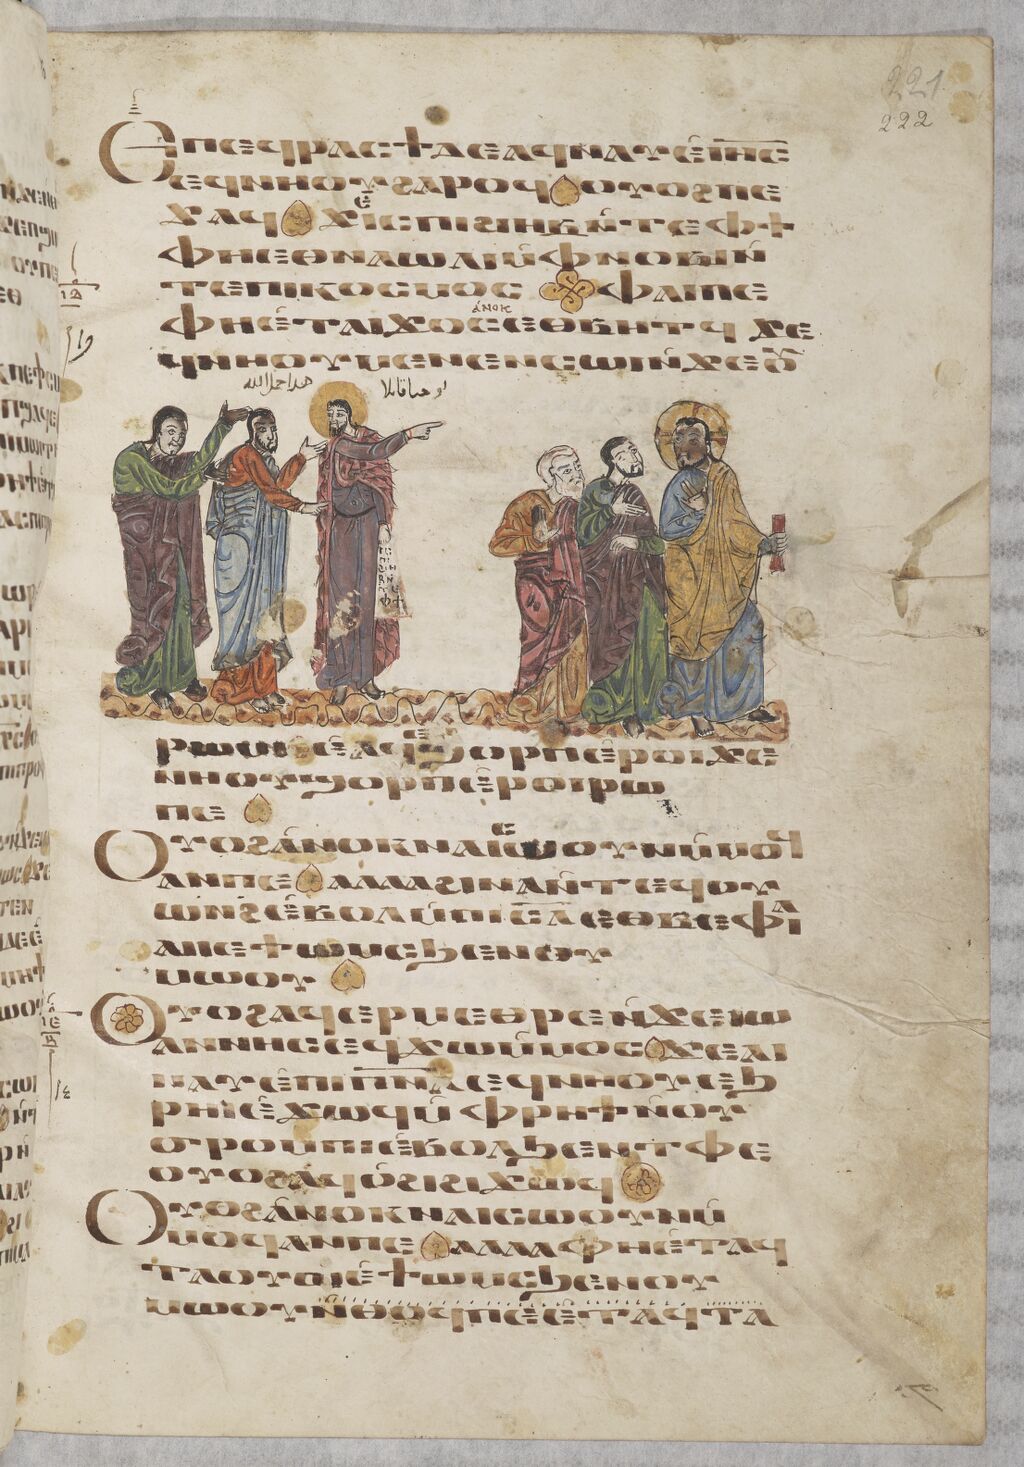 221
222
Ⲉⲡⲉϥⲣⲁⲥϯ ⲇⲉ ⲁϥⲛⲁⲩ ⲉ̀ⲓⲏ̅ⲥ̅
ⲉϥⲛⲏⲟⲩ ϩⲁⲣⲟϥ ⲟⲩⲟϩ ⲡⲉ
ϫⲁϥ ϫⲉ ⲓⲥ ⲡⲓϩⲓⲏⲃ ⲛ̀ⲧⲉ ⲫϯ
ⲫⲏⲉⲑⲛⲁⲱⲗⲓ ⲙ̀ⲫⲛⲟⲃⲓ ⲛ̀
ⲧⲉ ⲡⲓⲕⲟⲥⲙⲟⲥ ⲫⲁⲓ ⲡⲉ
ⲁ̀ⲛⲟⲕ
ⲫⲏⲉ̀ⲧⲁⲓϫⲟⲥ ⲉⲑⲃⲏⲧϥ ϫⲉ
ϥⲛⲏⲟⲩ ⲙⲉⲛⲉⲛⲥⲱⲓ ⲛ̀ϫⲉ ⲟⲩ
هدا حمل الله
ⲣⲱⲙⲓ ⲉ̀ⲁϥⲉⲣϣⲟⲣⲡ ⲉ̀ⲣⲟⲓ ϫⲉ
ⲛⲏⲟⲩϣⲟⲣⲡ ⲉ̀ⲣⲟⲓ ⲣⲱ
ⲡⲉ
Ⲟⲩⲟϩ ⲁ̀ⲛⲟⲕ ⲛⲁⲓⲥⲱⲟⲩⲛ ⲙ̀ⲙⲟϥ
ⲁⲛ ⲡⲉ ⲁⲗⲗⲁ ϩⲓⲛⲁ ⲛ̀ⲧⲉϥⲟⲩ
ⲱⲛϩ ⲉ̀ⲃⲟⲗ ⲙ̀ⲡⲓⲥ̅ⲗ̅ ⲉⲑⲃⲉ ⲫⲁⲓ
ⲁⲓⲓ̀ ⲉϯⲱⲙⲥ ϧⲉⲛ ⲟⲩ
ⲙⲱⲟⲩ
Ⲟⲩⲟϩ ⲁϥⲉⲣⲙⲉⲑⲣⲉ ⲛ̀ϫⲉ ⲓⲱ
ⲁⲛⲛⲏⲥ ⲉϥϫⲱ ⲙ̀ⲙⲟⲥ ϫⲉ ⲁⲓ
ⲛⲁⲩ ⲉ̀ⲡⲓⲡ̅ⲛ̅ⲁ̅ ⲉϥⲛⲏⲟⲩ ⲉϧ
ⲣⲏⲓ ⲉ̀ϫⲱϥ ⲙ̀ⲫⲣⲏϯ ⲛ̀ⲟⲩ
ϭⲣⲟⲙⲡⲓ ⲉ̀ⲃⲟⲗ ϧⲉⲛ ⲧⲫⲉ
ⲟⲩⲟϩ ⲁϥⲟ̀ϩⲓ ϩⲓϫⲱϥ
Ⲟⲩⲟϩ ⲁ̀ⲛⲟⲕ ⲛⲁⲓⲥⲱⲟⲩⲛ ⲙ̀
ⲙⲟϥ ⲁⲛ ⲡⲉ ⲁⲗⲗⲁ ⲫⲏⲉ̀ⲧⲁϥ
ⲧⲁⲟⲩⲟⲓ ⲉ̀ϯⲱⲙⲥ ϧⲉⲛ ⲟⲩ
ⲙⲱⲟⲩ ⲛ̀ⲑⲟϥ ⲡⲉ ⲉ̀ⲧⲁϥⲧⲁ